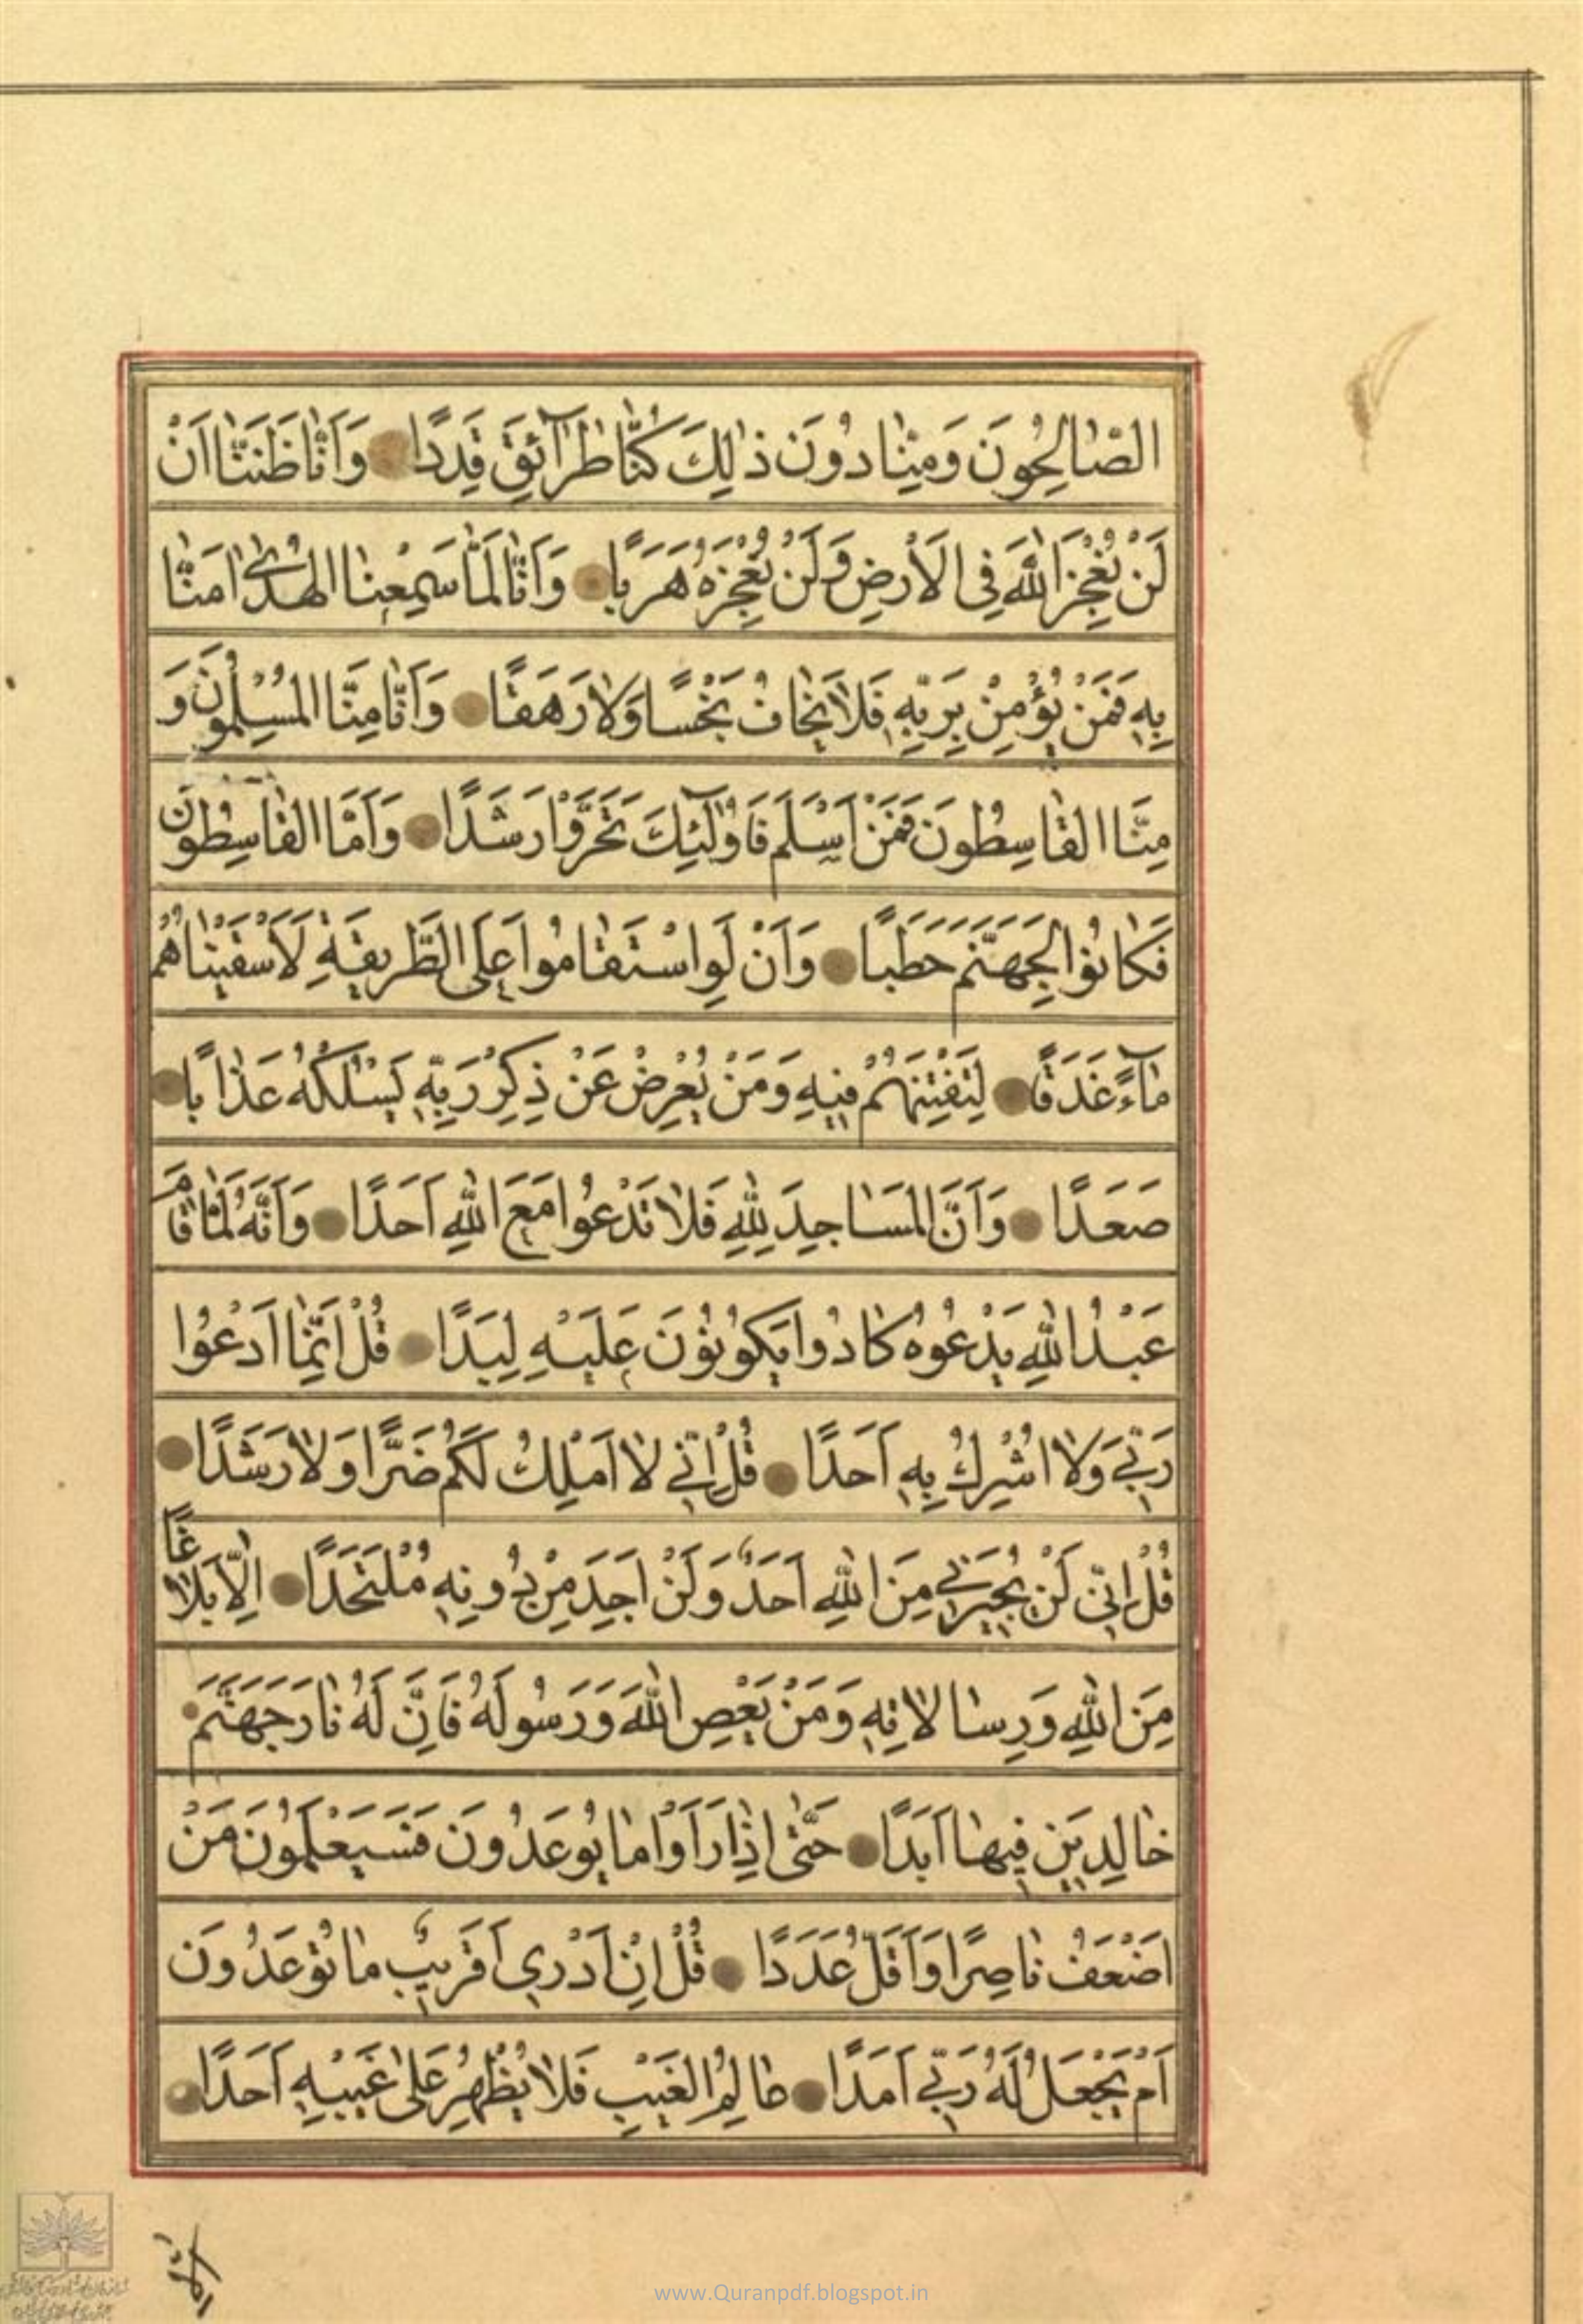 الصّٰالِحُونَ وَمِنّٰا دُونَ ذٰلِكَ كُنّٰا طَرٰٓائِقَ قِدَدًا وَاَنّٰا ظَنَنّٰا اَنْ
لَنْ نُعْجِزَ اللّٰهَ فِى الْاَرْضِ وَلَنْ نُعْجِزَهُ هَرَبًا وَاَنّٰا لَمّٰا سَمِعْنَا الْهُدٰى اٰمَنّٰا
بِهِ فَمَنْ يُؤْمِنْ بِرَبِّهِ فَلٰا يَخٰافُ بَخْسًا وَلٰا رَهَقًا وَاَنّٰا مِنَّا الْمُسْلِمُونَ وَ
مِنَّا الْقٰاسِطُونَ فَمَنْ اَسْلَمَ فَاُولٰٓئِكَ تَحَرَّوْا رَشَدًا وَاَمَّا الْقٰاسِطُونَ
فَكٰانُوا لِجَهَنَّمَ حَطَبًا وَاَنْ لَوِ اسْتَقٰامُوا عَلَى الطَّرِيقَةِ لَاَسْقَيْنٰاهُمْ
مٰآءً غَدَقًا لِنَفْتِنَهُمْ فِيهِ وَمَنْ يُعْرِضْ عَنْ ذِكْرِ رَبِّهِ يَسْلُكْهُ عَذٰابًا
صَعَدًا وَاَنَّ الْمَسٰاجِدَ لِلّٰهِ فَلٰا تَدْعُوا مَعَ اللّٰهِ اَحَدًا وَاَنَّهُ لَمّٰا قٰامَ
عَبْدُ اللّٰهِ يَدْعُوهُ كٰادُوا يَكُونُونَ عَلَيْهِ لِبَدًا قُلْ اِنَّمٰا اَدْعُوا
رَبِّي وَلٰا اُشْرِكُ بِهِ اَحَدًا قُلْ اِنِّي لٰا اَمْلِكُ لَكُمْ ضَرًّا وَلٰا رَشَدًا
قُلْ اِنِّي لَنْ يُجِيرَنِي مِنَ اللّٰهِ اَحَدٌ وَلَنْ اَجِدَ مِنْ دُونِهِ مُلْتَحَدًا اِلّٰا بَلٰاغًا
مِنَ اللّٰهِ وَرِسٰالٰاتِهِ وَمَنْ يَعْصِ اللّٰهَ وَرَسُولَهُ فَاِنَّ لَهُ نٰارَ جَهَنَّمَ
خٰالِدِينَ فِيهٰا اَبَدًا حَتّٰى اِذٰا رَاَوْا مٰا يُوعَدُونَ فَسَيَعْلَمُونَ مَنْ
اَضْعَفُ نٰاصِرًا وَاَقَلُّ عَدَدًا قُلْ اِنْ اَدْرِي اَقَرِيبٌ مٰا تُوعَدُونَ
اَمْ يَجْعَلُ لَهُ رَبِّي اَمَدًا عٰالِمُ الْغَيْبِ فَلٰا يُظْهِرُ عَلٰى غَيْبِهِ اَحَدًا
www.Quranpdf.blogspot.in